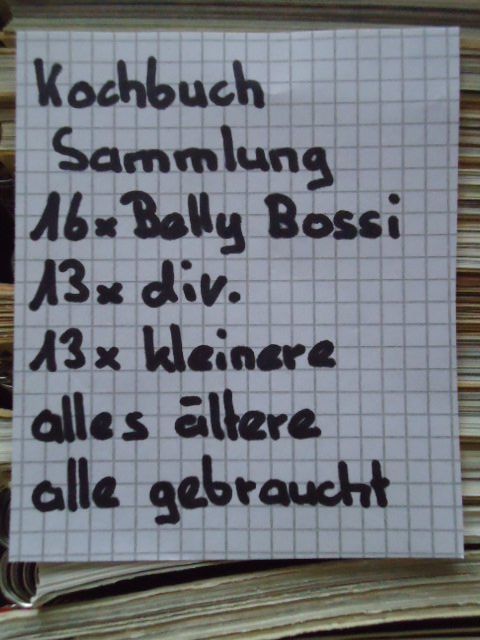 Kochbuch
Sammlung
16x Betty Bossi
13x div.
13x kleinere
alles ältere
alle gebraucht